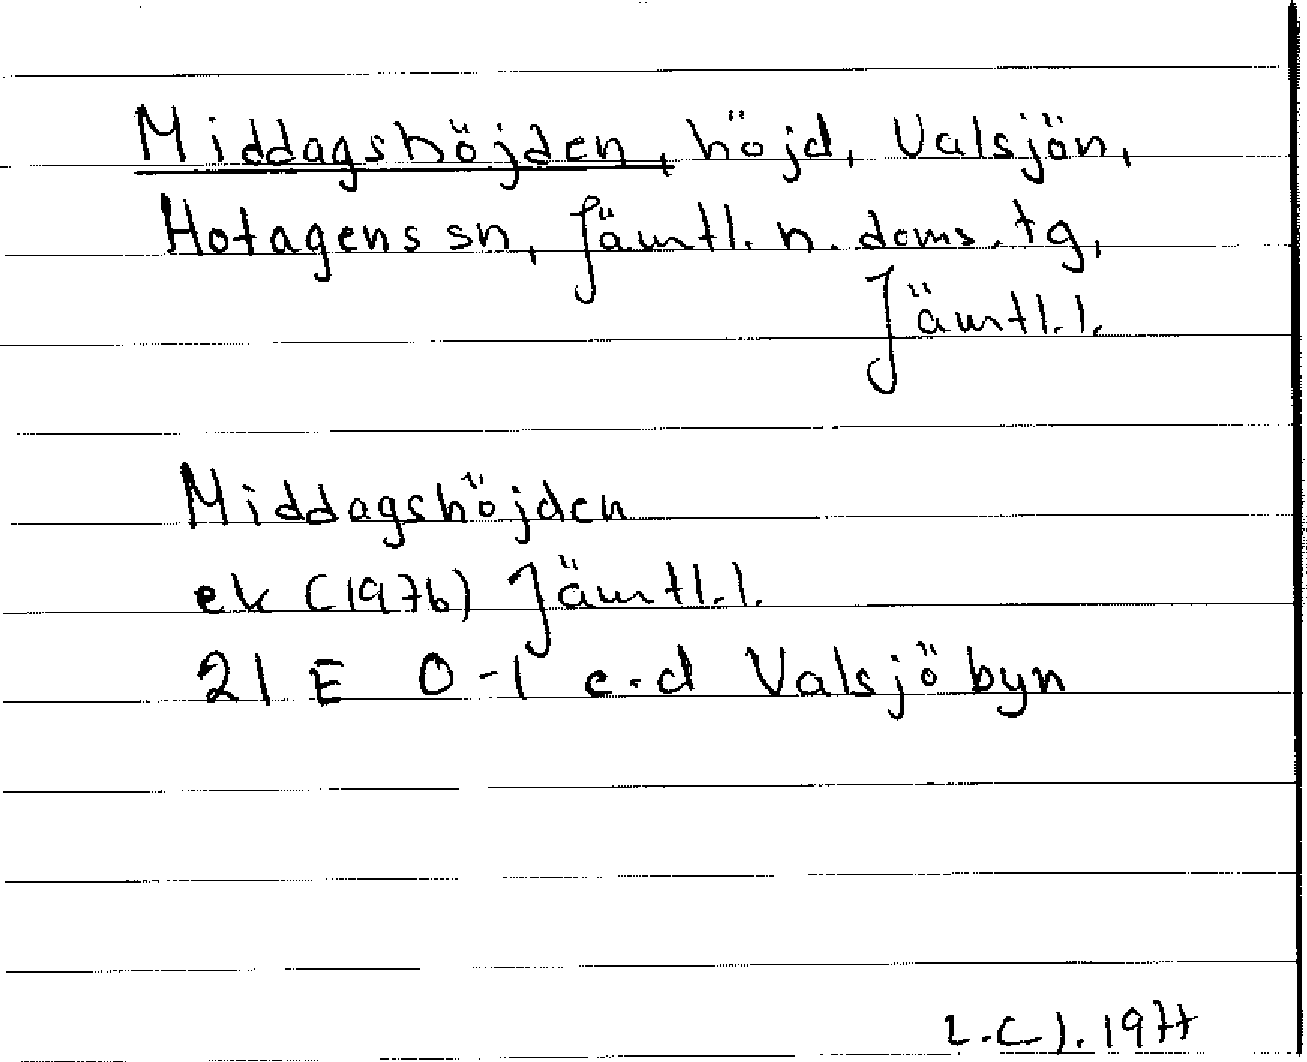 Middagshöjden, höjd, Valsjön,
Hotagens sn, Jämtl. n. doms. tg,
Jämtl.l.
Middagshöjden
ek (1976) Jämtl.l.
21 E 0-1 c-d Valsjöbyn
L.C.J. 1977